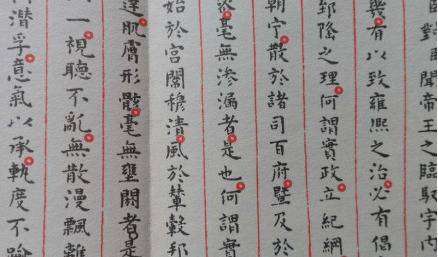 臣對臣聞帝王之臨馭宇內
幾有以致雍熙之治必有倡
郅隆之理何謂實政立紀綱
朝宁散於諸司百府暨及於
毫無滲漏者是也何謂實
始於宮闈穆清風於輦轂邦
達肌膚形骸毫無壅閼者是
一視聽不亂無散漫飄離
潛孚意氣以承軌度不踰